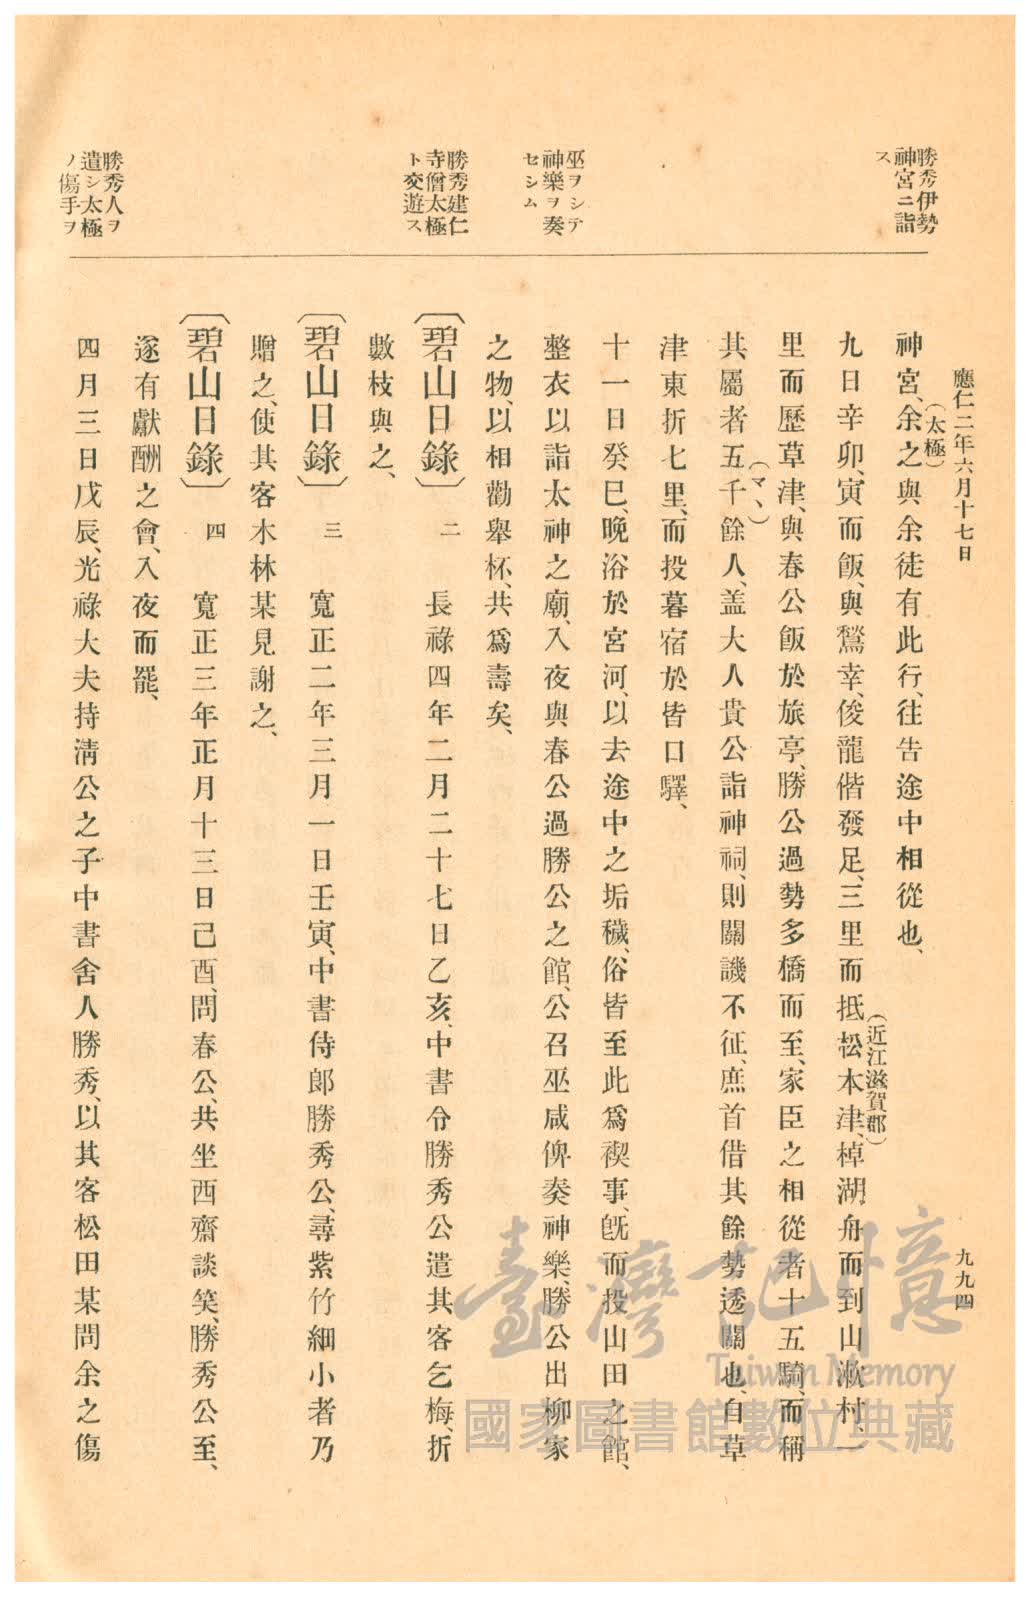 應仁二年六月十七日
九九四
勝秀伊勢
神宮ニ詣
ス
巫ヲシテ
神樂ヲ奏
セシム
勝秀建仁
寺僧太極
ト交遊ス
勝秀人ヲ
遣シ太極
ノ傷手ヲ
神宮、余之與余徒有此行、往告途中相從也、
(太極)
九日辛卯、寅而飯、與鶖幸、俊龍偕發足、三里而抵松本津、棹湖舟而到山漱村、一
(近江滋賀郡)
里而歷草津、與春公飯於旅亭、勝公過勢多橋而至、家臣之相從者十五騎、而稱
其屬者五千餘人、盖大人貴公詣神祠、則關譏不征、庶首借其餘勢透關也、自草
(マヽ)
津東折七里、而投暮宿於皆口驛、
十一日癸巳、晚浴於宮河、以去途中之垢穢、俗皆至此爲禊事、旣而投山田之館、
整衣以詣太神之廟、入夜與春公過勝公之館、公召巫咸俾奏神樂、勝公出柳家
之物、以相勸舉杯、共爲壽矣、
〔碧山日錄〕 二 長祿四年二月二十七日乙亥、中書令勝秀公遣其客乞梅、折
數枝與之、
〔碧山日錄〕 三 寬正二年三月一日壬寅、中書侍郎勝秀公、尋紫竹細小者乃
贈之、使其客木林某見謝之、
〔碧山日錄〕 四 寬正三年正月十三日己酉、問春公、共坐西齋談笑、勝秀公至、
遂有獻酬之會、入夜而罷、
四月三日戊辰、光祿大夫持淸公之子中書舍人勝秀、以其客松田某問余之傷
臺灣記憶
Taiwan Memory
國家圖書館數位典藏